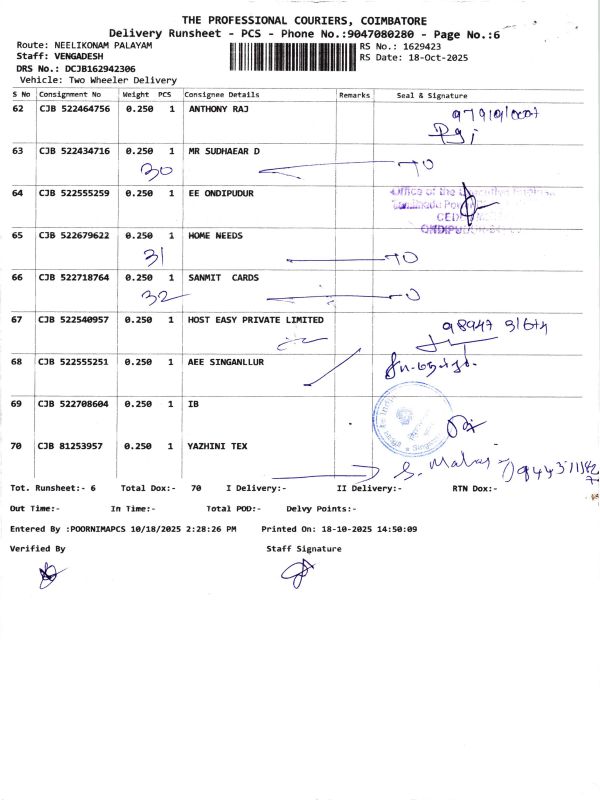 THE PROFESSIONAL COURIERS, COIMBATORE
Delivery Runsheet - PCS - Phone No.:9047080280 - Page No.:6
Route: NEELIKONAM PALAYAM
RS No.: 1629423
Staff: VENGADESH
RS Date: 18-Oct-2025
DRS No.: DCJB162942306
Vehicle: Two Wheeler Delivery
S No Consignment No Weight PCS Consignee Details Remarks Seal & Signature
62 CJB 522464756 0.250 1 ANTHONY RAJ
63 CJB 522434716 0.250 1 MR SUDHAEAR D
30 TO
64 CJB 522555259 0.250 1 EE ONDIPUDUR
Office of the
65 CJB 522679622 0.250 1 HOME NEEDS
31 TO
66 CJB 522718764 0.250 1 SANMIT CARDS
32 TO
67 CJB 522540957 0.250 1 HOST EASY PRIVATE LIMITED
68 CJB 522555251 0.250 1 AEE SINGANLLUR
69 CJB 522708604 0.250 1 IB
70 CJB 81253957 0.250 1 YAZHINI TEX
Tot. Runsheet:- 6 Total Dox:- 70 I Delivery:- II Delivery:- RTN Dox:-
Out Time:- In Time:- Total POD:- Delvy Points:-
Entered By :POORNIMAPCS 10/18/2025 2:28:26 PM Printed On: 18-10-2025 14:50:09
Verified By Staff Signature